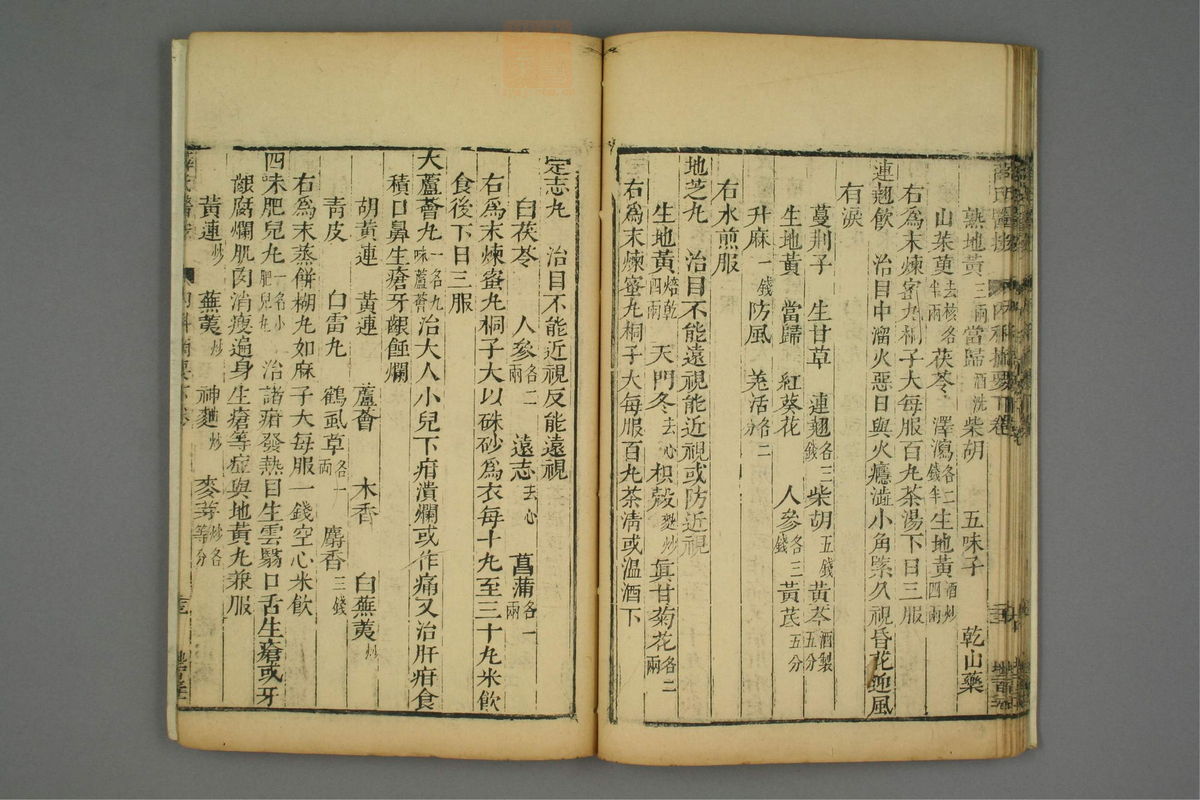 熟地黃三兩 當歸酒洗 柴胡 五味子 乾山藥
山茱萸去核各半兩 茯苓 澤瀉各二錢半 生地黃酒炒四兩
右為末煉蜜丸桐子大每服百丸茶湯下日三服
連翹飲 治目中溜火惡日與火癮澁小角緊久視昏花迎風
有淚
蔓荆子 生甘草 連翹各三錢 柴胡五錢 黃芩酒製五分
生地黃 當歸 紅葵花 人參各三錢 黃芪五分
升麻一錢 防風 羌活各二分
右水煎服
地芝丸 治目不能遠視能近視或防近視
生地黃焙乾四兩 天門冬去心 枳殼麩炒 眞甘菊花各二兩
右為末煉蜜丸桐子大每服百丸茶清或溫酒下
定志丸 治目不能近視反能遠視
白茯苓 人參各二兩 遠志去心 菖蒲各一兩
右為末煉蜜丸桐子大以硃砂為衣每十丸至三十丸米飲
食後下日三服
大蘆薈丸一名九味蘆薈 治大人小兒下疳潰爛或作痛又治肝疳食
積口鼻生瘡牙齦蝕爛
胡黃連 黃連 蘆薈 木香 白蕪荑炒
青皮 白雷丸 鶴虱草各一兩 麝香三錢
右為末蒸餅糊丸如麻子大每服一錢空心米飲
四味肥兒丸一名小肥兒丸 治諸疳發熱目生雲翳口舌生瘡或牙
齦腐爛肌肉消瘦遍身生瘡等症與地黃丸兼服
黃連炒 蕪荑炒 神麯炒 麥芽炒各等分